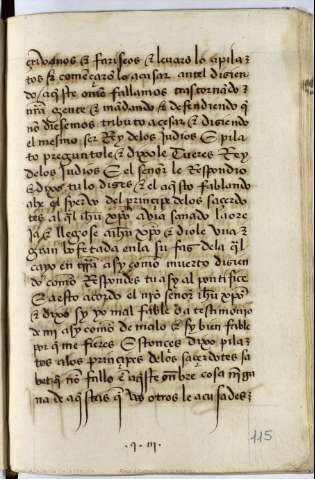 escriuanos & fariseos & leuaro lo a pila
tos & començaro lo acusar antel disien
do aqueste ome fallamos trastornado
nra gente & mandando & defendiendo q
no diesemos tributo a cesar & disiendo
el mesmo ser Rey delos Judios E pila
to preguntole & dixole Tu eres Rey
delos Judios E el señor le Respondio
& dixo tu lo dises & el aqsto fablando
ahe el syeruo del principe delos sacerdo
tes al ql ihu xpo auia sanado la ore
ja & llegose a ihu xpo & diole vna
gran bofetada en la su fas dela ql
cayo en tierra asy como muerto disien
do como Respondes tu asy al pontifice
E aesto acordo el nro señor ihu xpo
& dixo sy yo mal fable da testimonio
de mi asy como de malo & sy bien fable
por q me fieres Estonces dixo pila
tos alos principes delos sacerdotes sa
bet q no fallo en aqste onbre cosa nigu
na de aqstas q vos otros le acusades
115
· q · iii ·